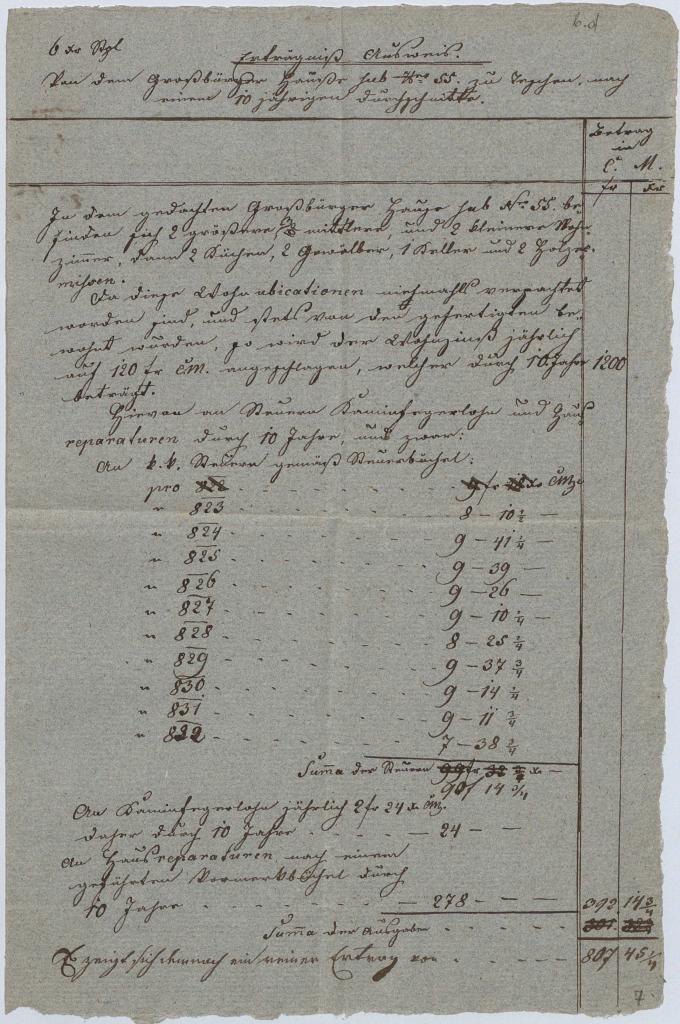 6 xr Stpl
6.d
Erträgniß Ausweis.
Von dem Großbürger Hause sub Nro 55. zu Teschen, nach
einem 10 jährigen Durchschnitte.
Betrag
in
C. M.
fr xr
In dem gedachten Großbürger Hause sub Nro 55. be-
finden sich 2 größere, 2 mittlere, und 2 kleinere Wohn
zimmer, dann 2 Küchen, 2 Gewölber, 1 Keller und 2 Holzre-
misen.
Da diese Wohnubicationen niehmahls verpachtet
worden sind, und stets von den gefertigten be-
wohnt wurden, so wird der Wohnzins jährlich
auf 120 fr CM. angeschlagen, welcher durch 10 Jahre 1200
beträgt.
Hievon an Steuern Kaminfegerlohn und Haus
reparaturen durch 10 Jahre, und zwar:
An k. k. Steuern gemäß Steuerbüchel:
pro 822 - - - - fr xr CMz
" 823 - - - - 8 - 10 2/4 -
" 824 - - - - 9 - 41 1/4 -
" 825 - - - - 9 - 39 -
" 826 - - - - 9 - 26 -
" 827 - - - - 9 - 10 1/4 -
" 828 - - - - 8 - 25 2/4
" 829 - - - - 9 - 37 3/4
" 830 - - - - 9 - 14 1/4
" 831 - - - - 9 - 11 3/4
" 832 - - - - 7 - 38 2/4
Summa der Steuern 99 fr 32 3/4 xr -
90 14 3/4
An Kaminfegerlohn jährlich 2 fr 24 xr CMz.
daher durch 10 Jahre - - - - 24 - -
An Hausreparaturen nach einem
geführten Vormerkbüchel durch
10 Jahre - - - - 278 - - - 392 14 3/4
Summa der Ausgaben - - - -
Es zeigt sich demnach ein reiner Ertrag von - - - - 807 45 1/4
7.